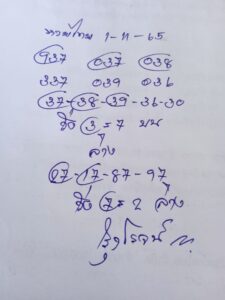 1-11-65
937 037 038
337 039 036
37-38-39-36-30
3 = 7 บน
ล่าง
27-17-87-97
7 = 2 ล่าง